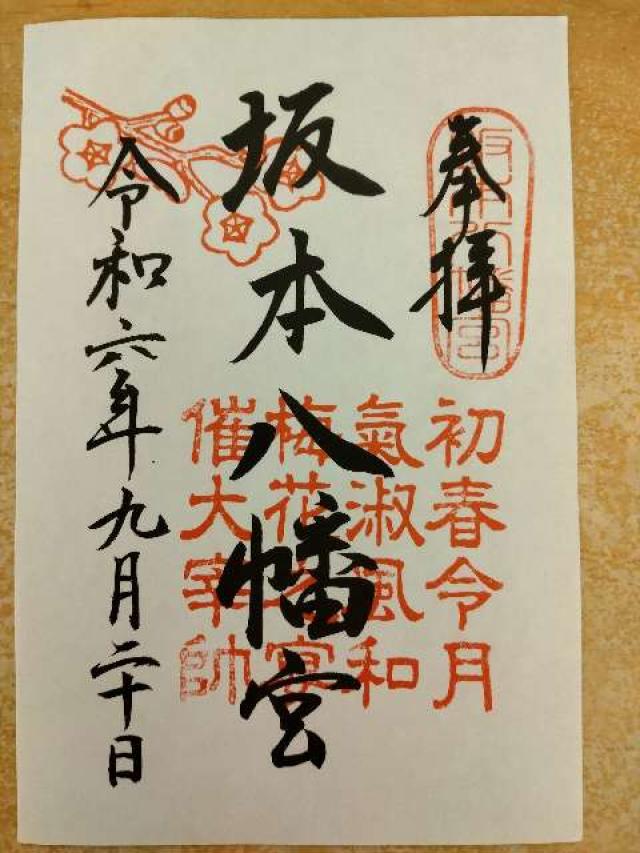 奉拝
坂本八幡宮
初春令月
氣淑風和
梅花之宴
催大宰帥
坂本八幡宮
令和六年九月二十日